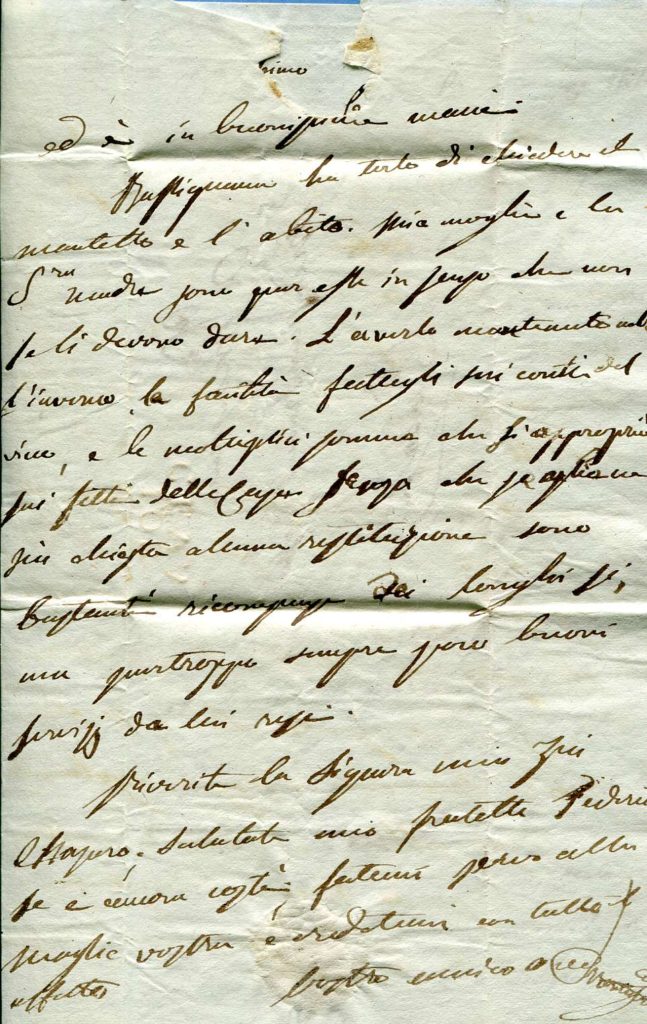 simo
ed è in buonissime mani.
ha torto di chiedere il
mantello e l'abito. Mia moglie e la
Sra madre sono pur esse in senso che non
se li devono dare. L'averlo mantenuto nel
l'inverno, la fattigli sui conti del
vino, e le molteplici somme che si appropriò
sui fitti delle Case senza che se gliene
sia chiesta alcuna restituzione sono
bastanti ricompense dei lunghi si,
ma purtroppo sempre poco buoni
servizj da lui resi.
Riverite la Signora mia Zia
salutate mio fratello
se è ancora costì, fatemi servo alla
moglie vostra e credetemi con tutto l'
affetto Vostro amico